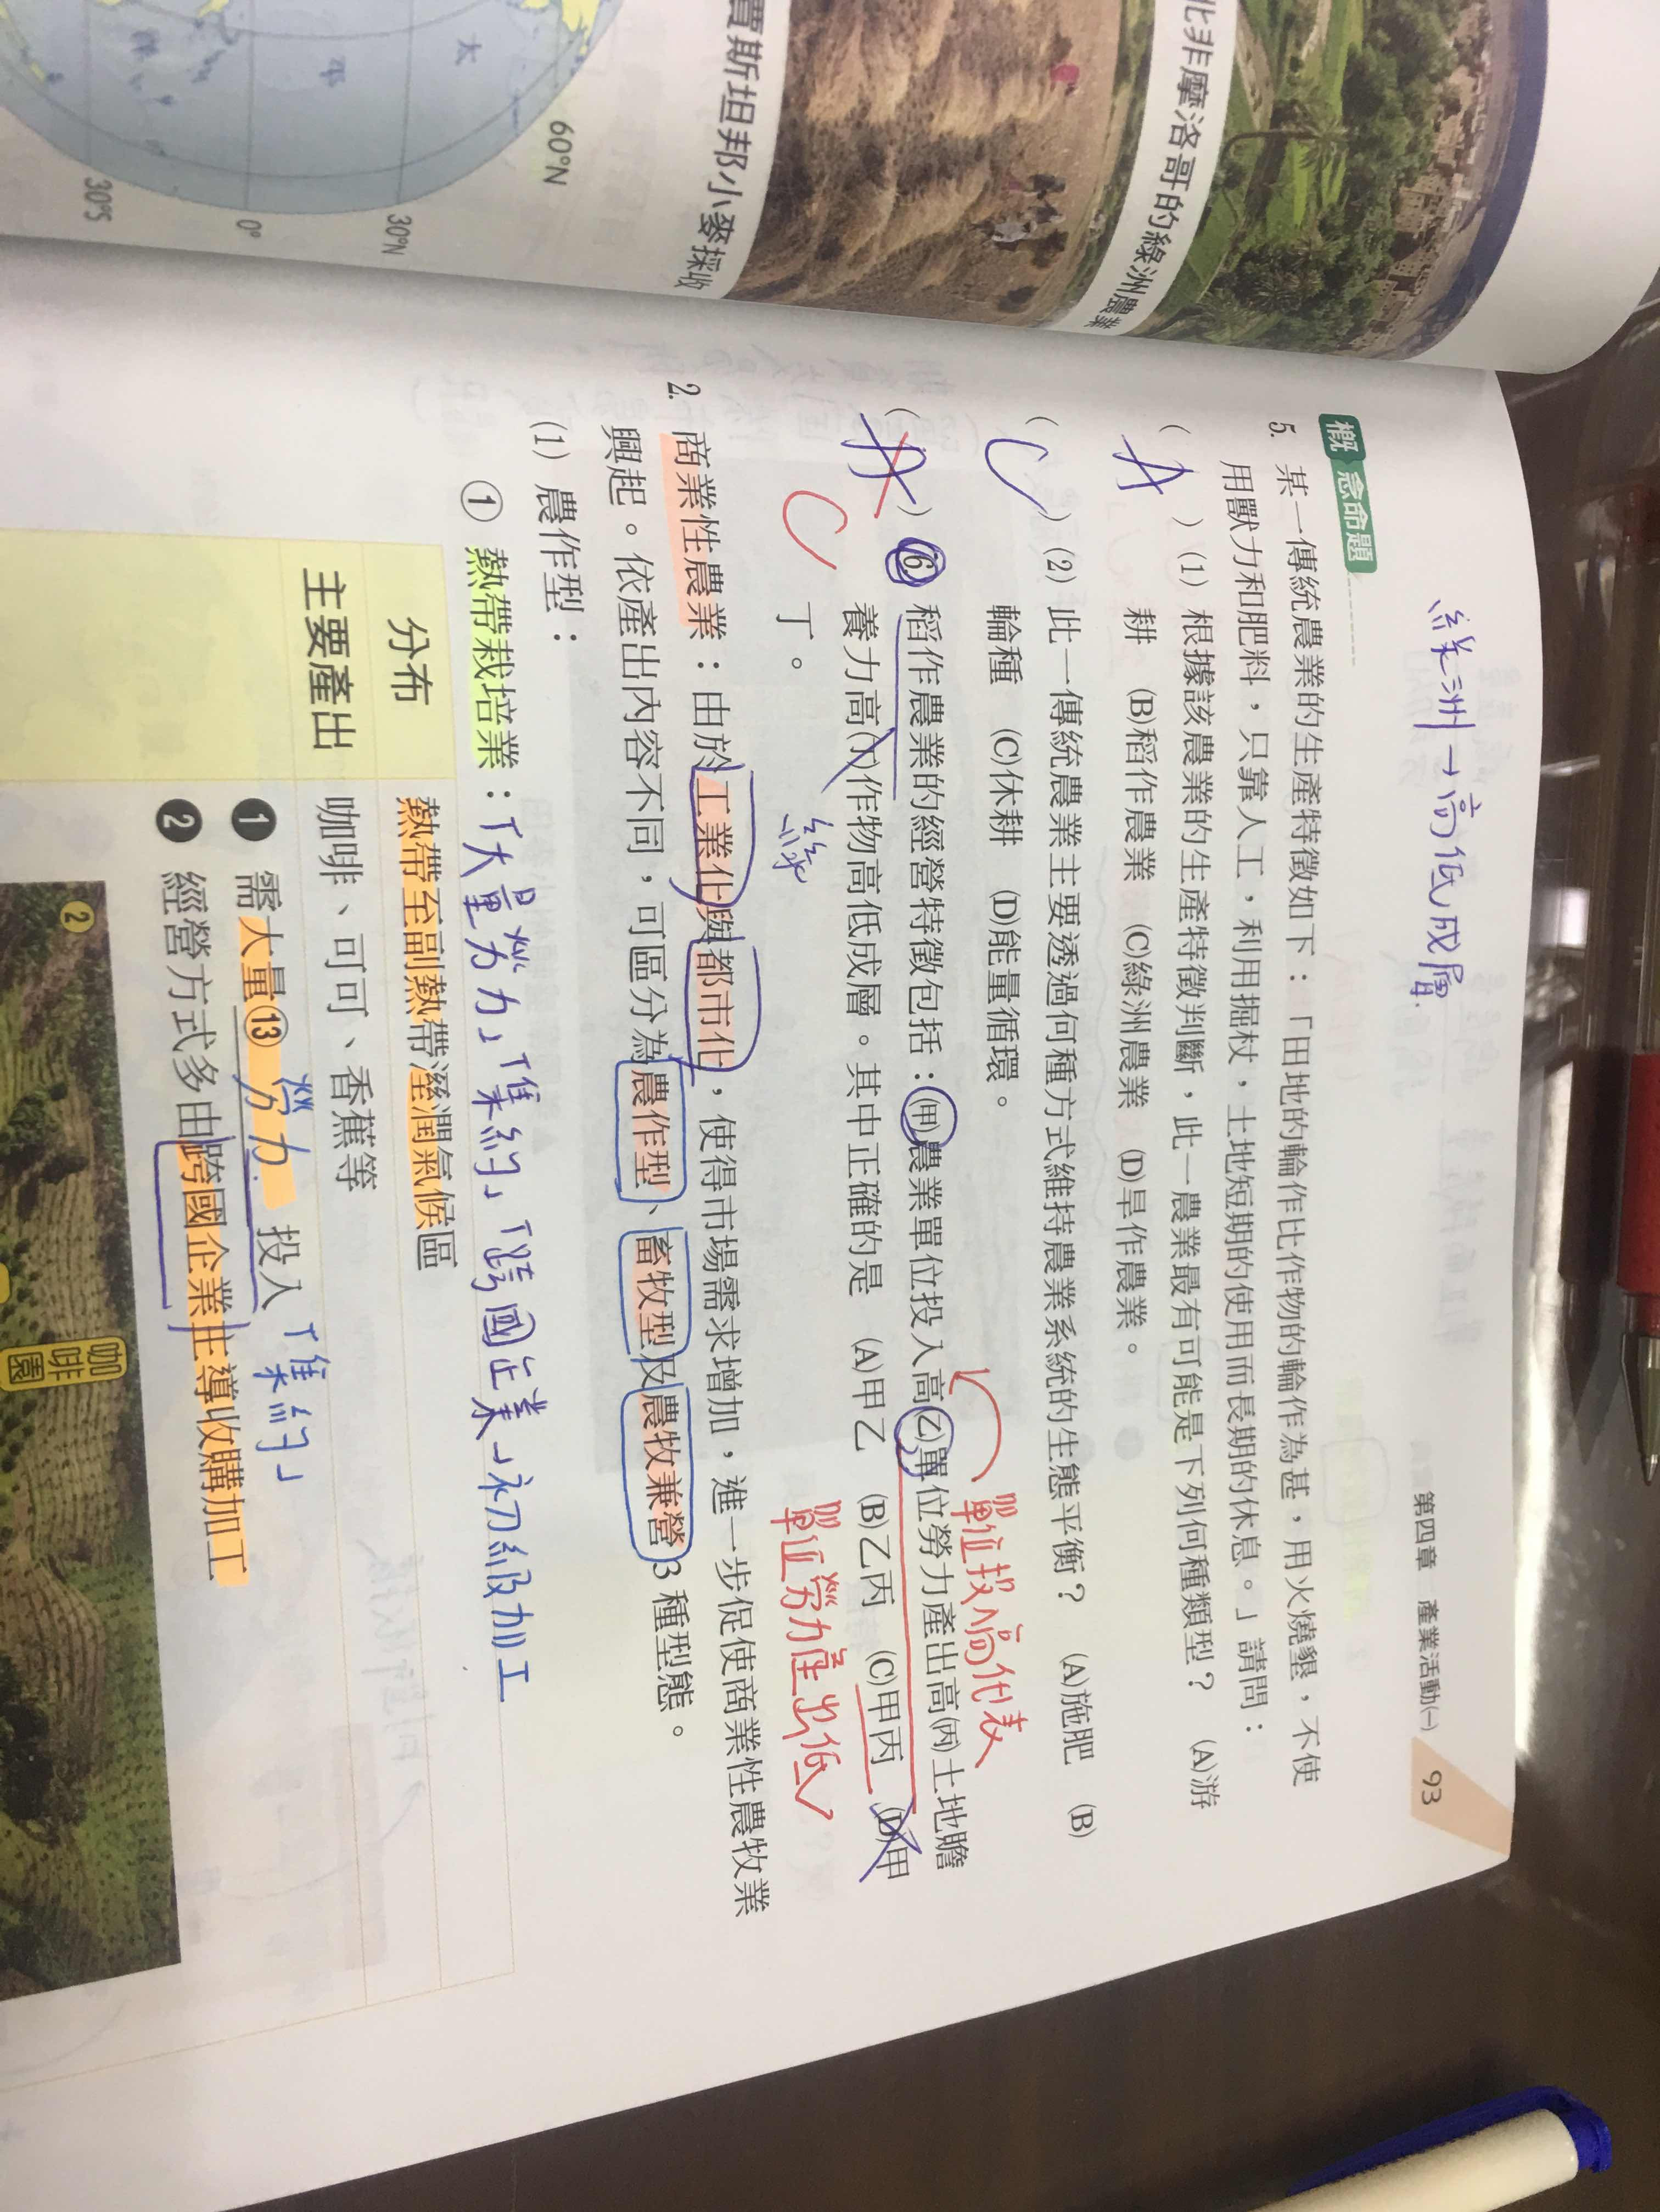 北非摩洛哥的綠洲農業
賈斯坦邦小麥採收
60°N
30°N
0°
30°S
太
平
綠洲→高低成層
第四章 產業活動㈠ 93
概念命題
5. 某一傳統農業的生產特徵如下：「田地的輪作比作物的輪作為甚，用火燒墾，不使
用獸力和肥料，只靠人工，利用掘杖，土地短期的使用而長期的休息。」請問：
( A ) (1) 根據該農業的生產特徵判斷，此一農業最有可能是下列何種類型？ (A)游
耕 (B)稻作農業 (C)綠洲農業 (D)旱作農業。
( C ) (2) 此一傳統農業主要透過何種方式維持農業系統的生態平衡？ (A)施肥 (B)
輪種 (C)休耕 (D)能量循環。
即單位投入高代表
( A ) 6. 稻作農業的經營特徵包括：㈙農業單位投入高㈚單位勞力產出高㈛土地贍
養力高㈜作物高低成層。其中正確的是 (A)甲乙 (B)乙丙 (C)甲丙 (D)甲
C
丁。
綠
即單位勞力產出低
2. 商業性農業：由於工業化與都市化，使得市場需求增加，進一步促使商業性農牧業
興起。依產出內容不同，可區分為農作型、畜牧型及農牧兼營3種型態。
(1) 農作型：
① 熱帶栽培業：「大量勞力」「集約」「跨國企業」初級加工
分布 熱帶至副熱帶溼潤氣候區
主要產出 咖啡、可可、香蕉等
❶ 需大量⑬勞力 投入「集約」
❷ 經營方式多由跨國企業主導收購加工
②
咖啡園